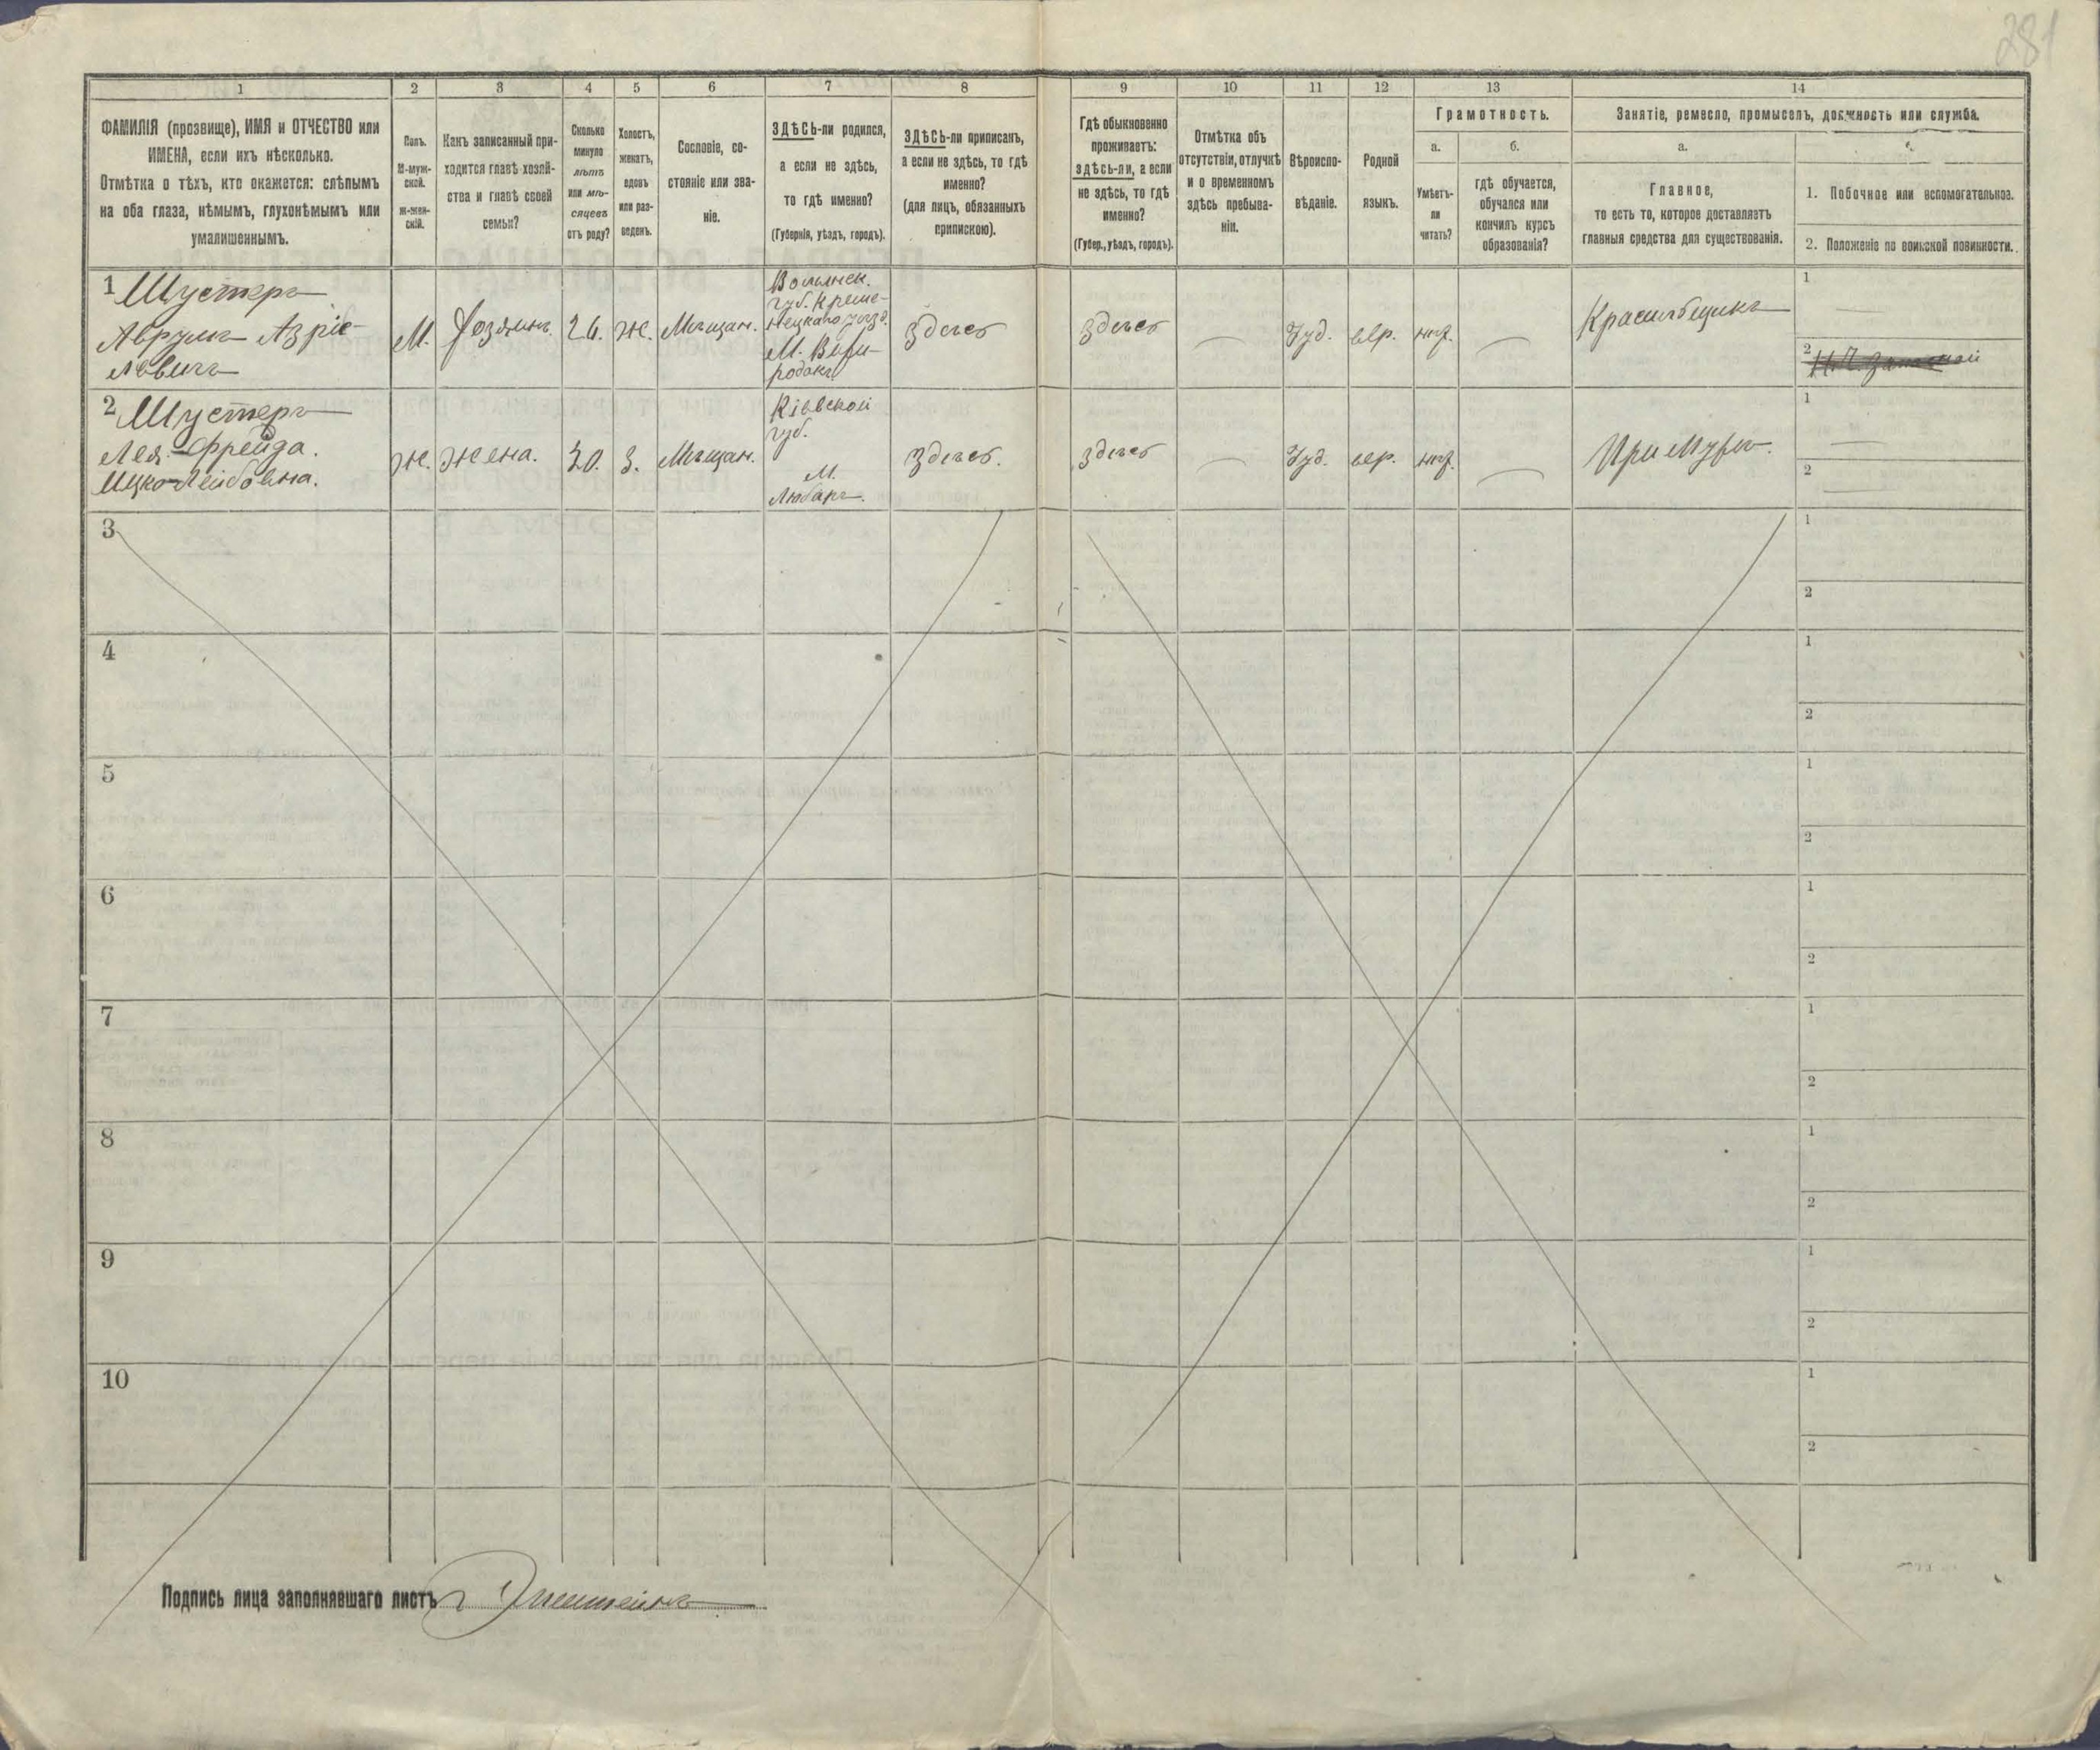 281
1
2
3
4
5
6
7
8
9
10
11
12
13
14
ФАМИЛІЯ (прозвище), ИМЯ и ОТЧЕСТВО или
ИМЕНА, если ихъ нѣсколько.
Отмѣтка о тѣхъ, кто окажется: слѣпымъ
на оба глаза, нѣмымъ, глухонѣмымъ или
умалишеннымъ.
Полъ.
М-муж-
ской.
Ж-жен-
скій.
Какъ записанный при-
ходится главѣ хозяй-
ства и главѣ своей
семьи?
Сколько
минуло
лѣтъ
или мѣ-
сяцевъ
отъ роду?
Холостъ,
женатъ,
вдовъ
или раз-
веденъ.
Сословіе, со-
стояніе или зва-
ніе.
ЗДѢСЬ-ли родился,
а если не здѣсь,
то гдѣ именно?
(Губернія, уѣздъ, городъ).
ЗДѢСЬ-ли приписанъ,
а если не здѣсь, то гдѣ
именно?
(для лицъ, обязанныхъ
припискою).
Гдѣ обыкновенно
проживаетъ:
здѣсь-ли, а если
не здѣсь, то гдѣ
именно?
(Губер., уѣздъ, городъ).
Отмѣтка объ
отсутствіи, отлучкѣ
и о временномъ
здѣсь пребыва-
ніи.
Вѣроиспо-
вѣданіе.
Родной
языкъ.
Грамотность.
а.
Умѣетъ-
ли
читать?
б.
гдѣ обучается,
обучался или
кончилъ курсъ
образованія?
Занятіе, ремесло, промыселъ, должность или служба.
а.
Главное,
то есть то, которое доставляетъ
главныя средства для существованія.
1. Побочное или вспомогательное.
2. Положеніе по воинской повинности.
1 Шустеръ
Аврумъ Азріе-
левичъ
М.
Хозяинъ.
26.
Ж.
Мѣщан.
Волынск.
губ. Креме-
нецкаго уѣзд.
М.
Здѣсь
Здѣсь
Іуд.
евр.
нѣт.
Красильщикъ
1
2
2 Шустеръ
Лея-Фрейда.
Ицко-Лейбовна.
Ж.
Жена.
20.
З.
Мѣщан.
Кіевской
губ.
М.
Любаръ.
Здѣсь.
Здѣсь
Іуд.
евр.
нѣт.
При мужѣ.
1
2
3
1
2
4
1
2
5
1
2
6
1
2
7
1
2
8
1
2
9
1
2
10
1
2
Подпись лица заполнявшаго листъ